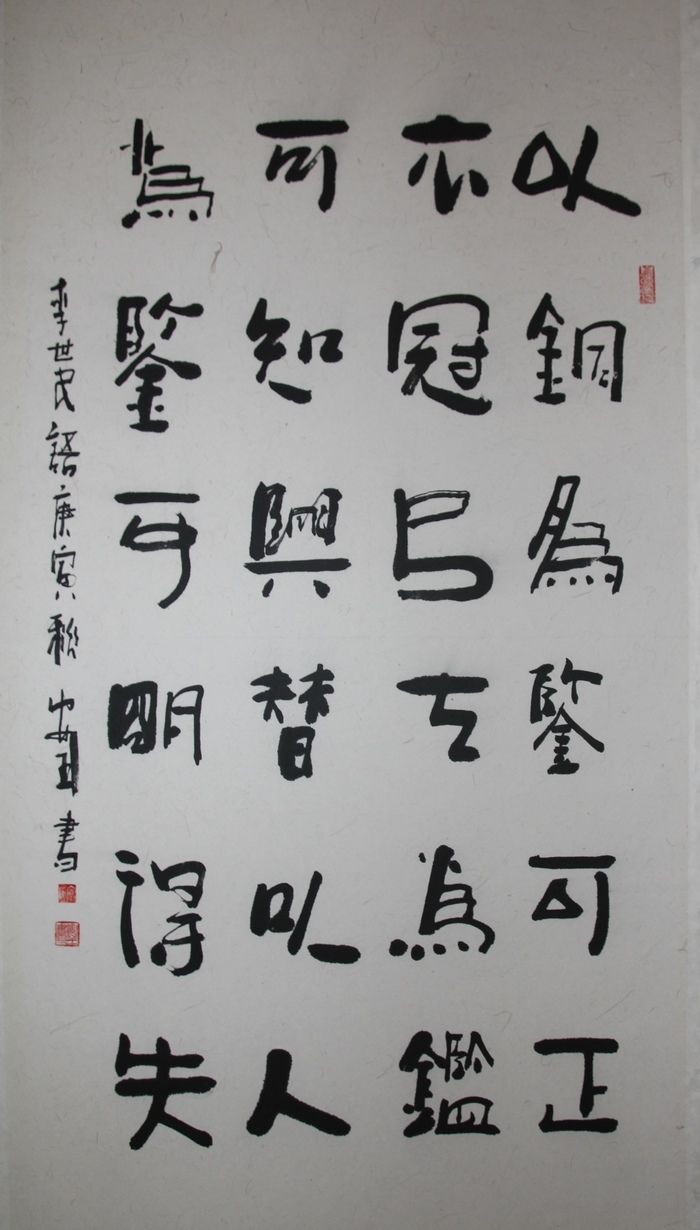 以銅為鑒可正
衣冠㠯古為鑑
可知興替以人
為鑒可明得失
李世民語庚寅秋書